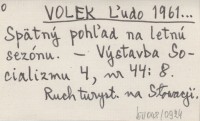 VOLEK Ľudo 1961...
Spätný pohľad na letnú
sezónu. – Výstavba So-
cializmu 4, nr 44: 8.
Ruch turyst. na Słowacji.